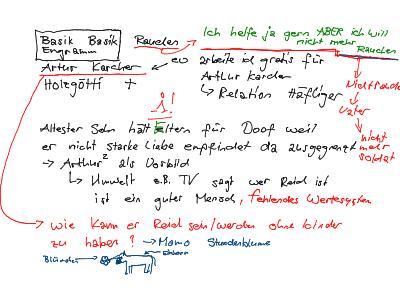 Basik Basik
Engramm
Rauchen
Ich helfe ja gern ABER ich will
nicht mehr
Rauchen
Artur Karcher
arbeite ich gratis für
Arthur Karcher
Holzgötti +
Relation Häfliger
Vater
nicht
mehr
soldat
Ältester Sohn hält Eltern für Doof weil
er nicht starke Liebe empfindet da ausgegrenzt
→ Arthur² als Vorbild
Umwelt z.B. TV sagt wer Reich ist
ist ein guter Mensch, fehlendes Wertesystem
wie kann er Reich sein/werden ohne kinder
zu haben? → Momo Stundenblume